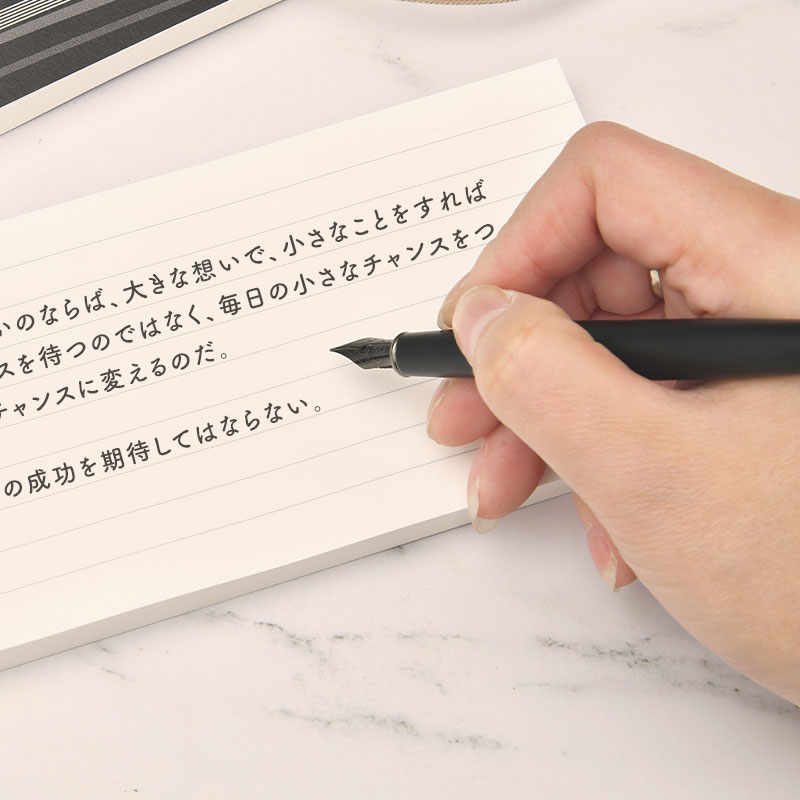 いのならば、大きな想いで、小さなことをすれば
スを待つのではなく、毎日の小さなチャンスをつ
チャンスに変えるのだ。
の成功を期待してはならない。